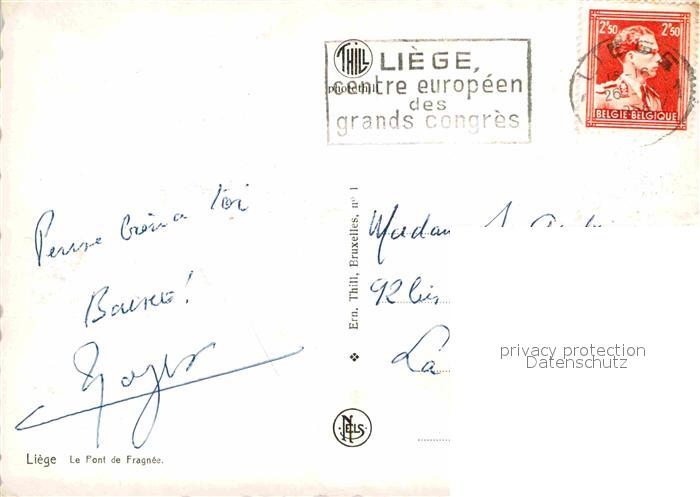 THILL
LIÈGE,
photothill
centre européen
des
grands congrès
2F50 2F50
BELGIE BELGIQUE
Pense bien à toi
Baisers!
Roger
Ern. Thill, Bruxelles, nº 1
Madam
92 bis
La
privacy protection
Datenschutz
NELS
Liège Le Pont de Fragnée.